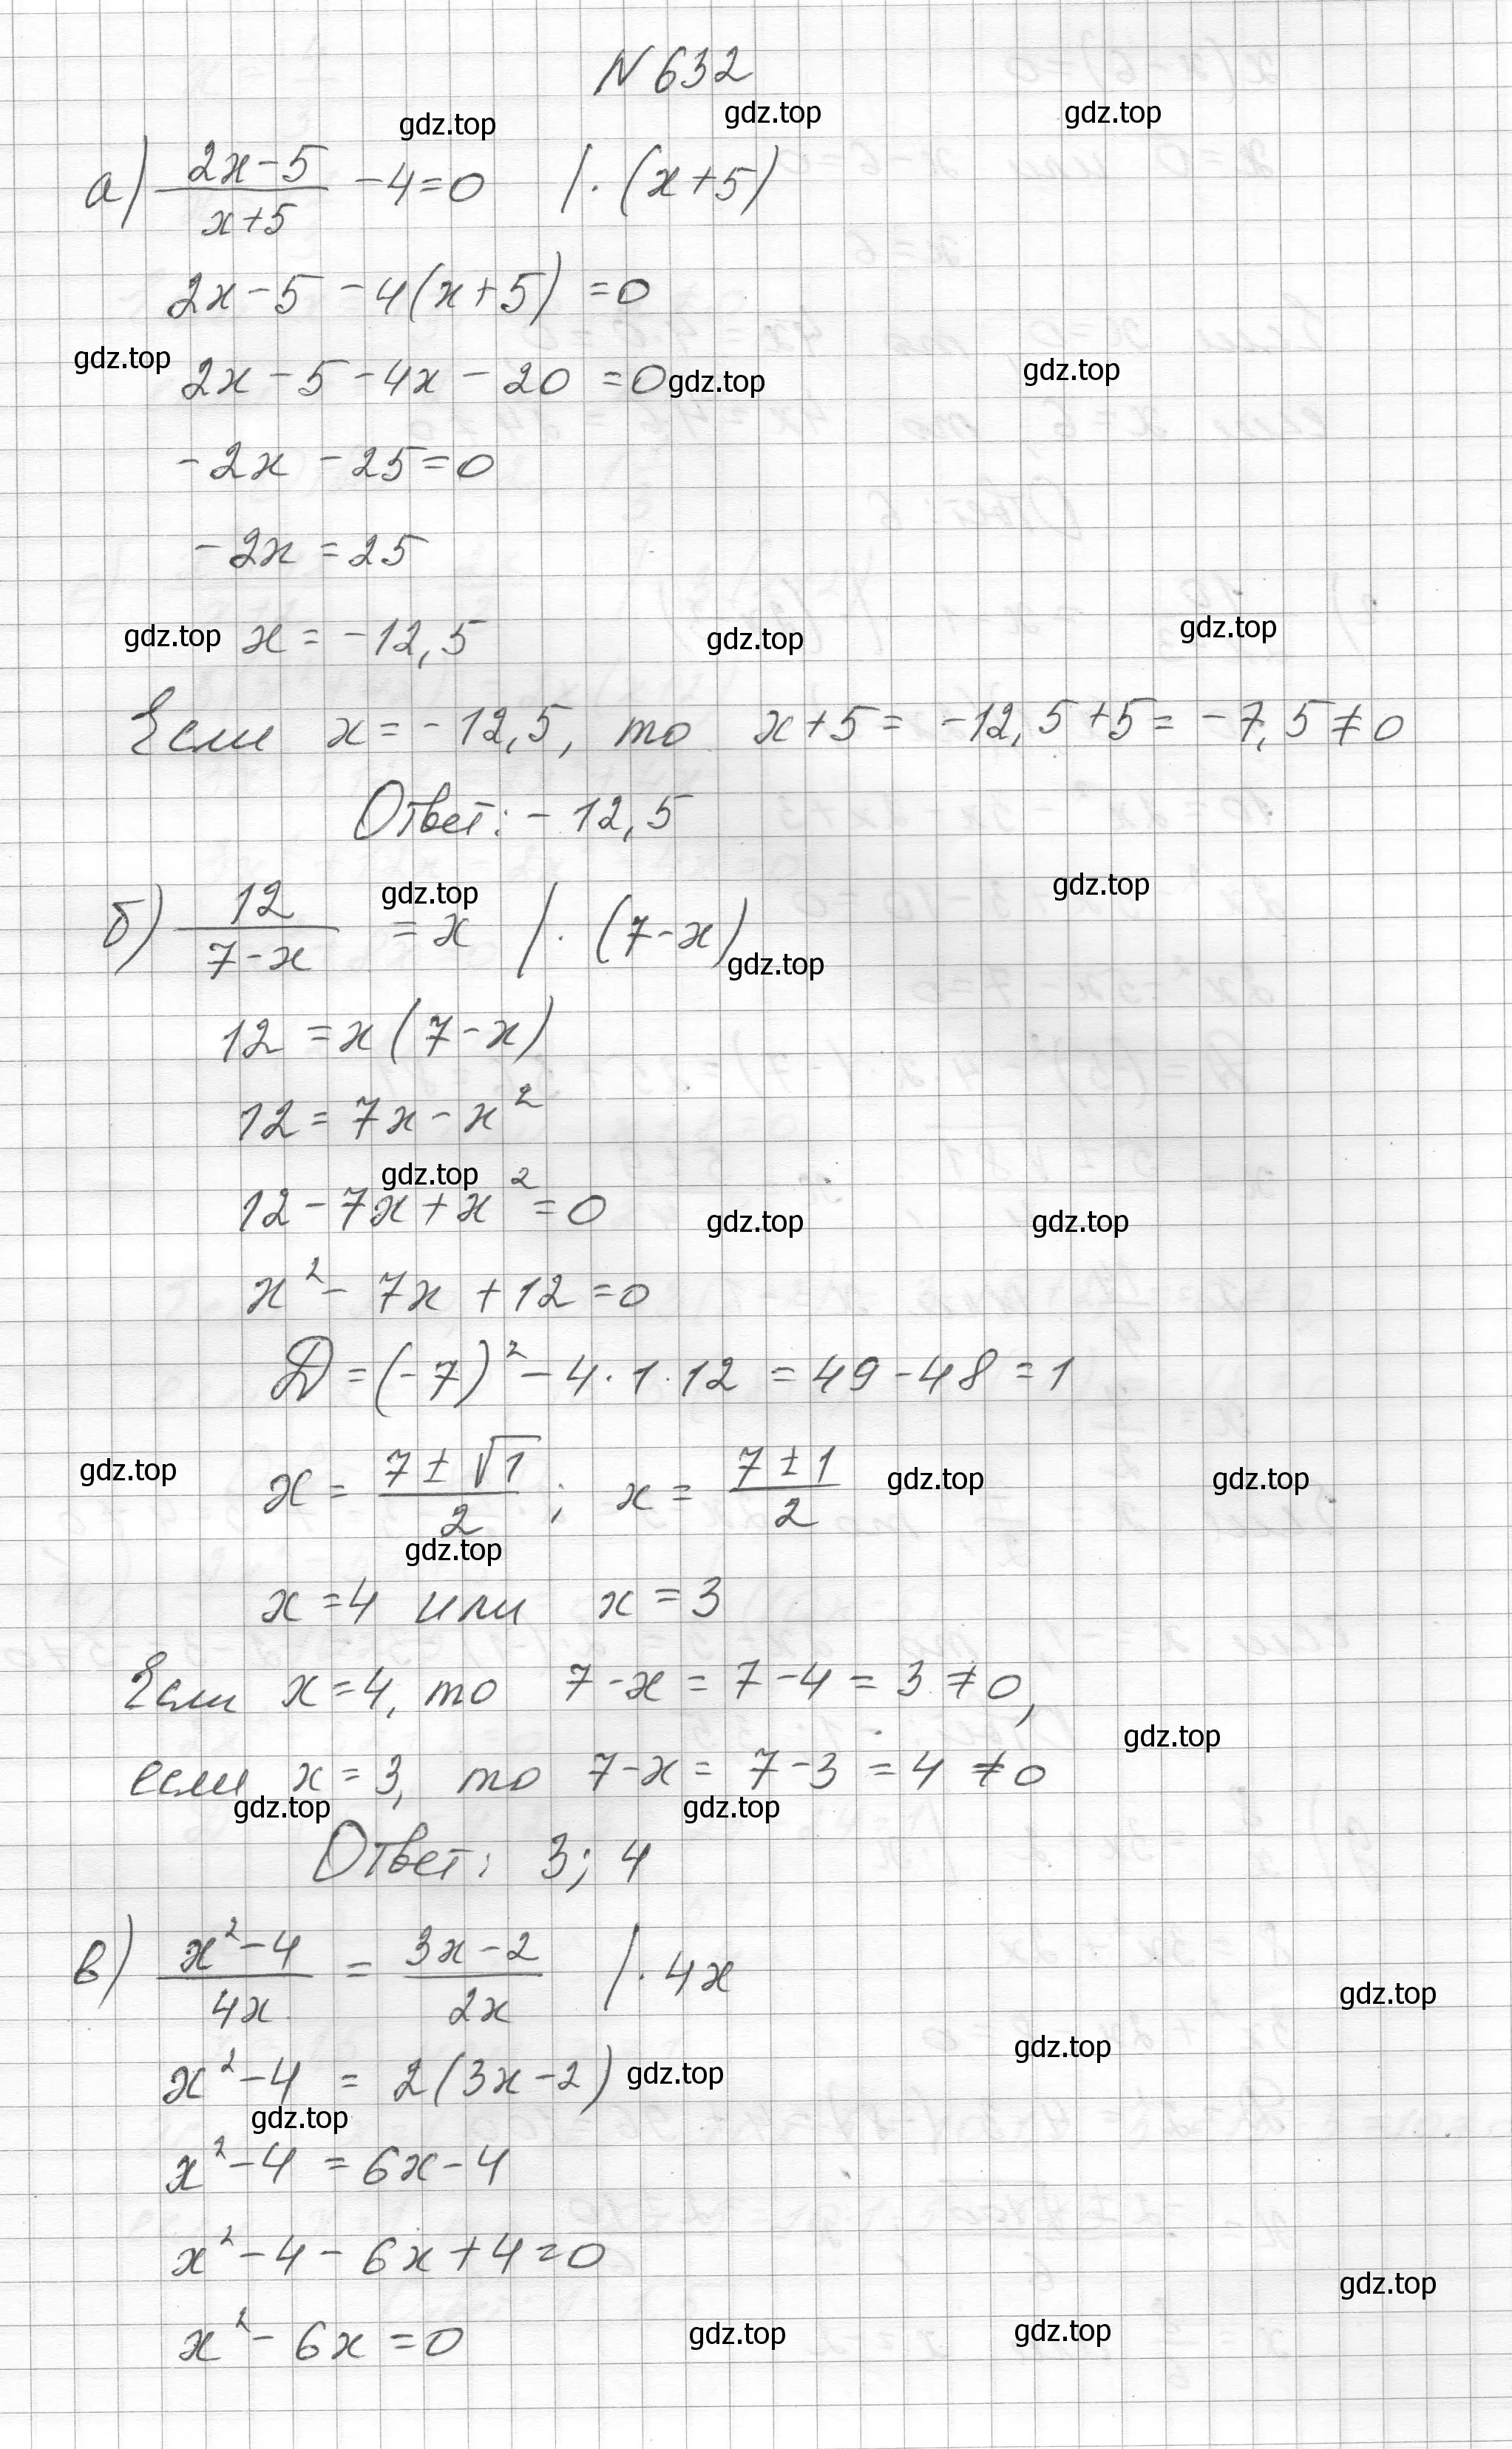 N 632
gdz.top gdz.top gdz.top
а) (2x-5)/(x+5) - 4 = 0 | · (x+5)
2x - 5 - 4(x+5) = 0
gdz.top 2x - 5 - 4x - 20 = 0 gdz.top gdz.top
-2x - 25 = 0
-2x = 25
gdz.top x = -12,5 gdz.top gdz.top
Если x = -12,5, то x+5 = -12,5+5 = -7,5 ≠ 0
Ответ: -12,5
б) 12/(7-x) = x | · (7-x)
gdz.top gdz.top gdz.top
12 = x(7-x)
12 = 7x - x²
gdz.top
12 - 7x + x² = 0 gdz.top gdz.top
x² - 7x + 12 = 0
D = (-7)² - 4·1·12 = 49 - 48 = 1
gdz.top x = (7 ± √1)/2 ; x = (7 ± 1)/2 gdz.top gdz.top
gdz.top
x = 4 или x = 3
Если x = 4, то 7-x = 7-4 = 3 ≠ 0,
gdz.top
если x = 3, то 7-x = 7-3 = 4 ≠ 0
gdz.top gdz.top
Ответ: 3; 4
в) (x²-4)/(4x) = (3x-2)/(2x) | · 4x
gdz.top
gdz.top
x² - 4 = 2(3x-2) gdz.top
gdz.top
x² - 4 = 6x - 4
x² - 4 - 6x + 4 = 0
gdz.top
x² - 6x = 0 gdz.top gdz.top